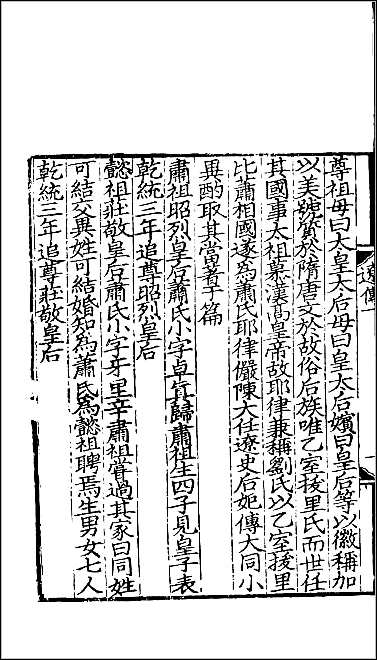 尊祖母曰太皇太后母曰皇太后嬪曰皇后等以徽稱加
以美號質於隋唐文於故俗后族唯乙室拔里氏而世任
其國事太祖慕漢髙皇帝故耶律兼稱劉氏以乙室拔里
比蕭相國遂為蕭氏耶律儼陳大任遼史后妃傳大同小
異酌取其當著于篇
肅祖昭烈皇后蕭氏小字卓真歸肅祖生四子見皇子表
乾統三年追尊昭烈皇后
懿祖莊敬皇后蕭氏小字牙里辛肅祖甞過其家曰同姓
可結交異姓可結婚知為蕭氏為懿祖聘焉生男女七人
乾統三年追尊莊敬皇后